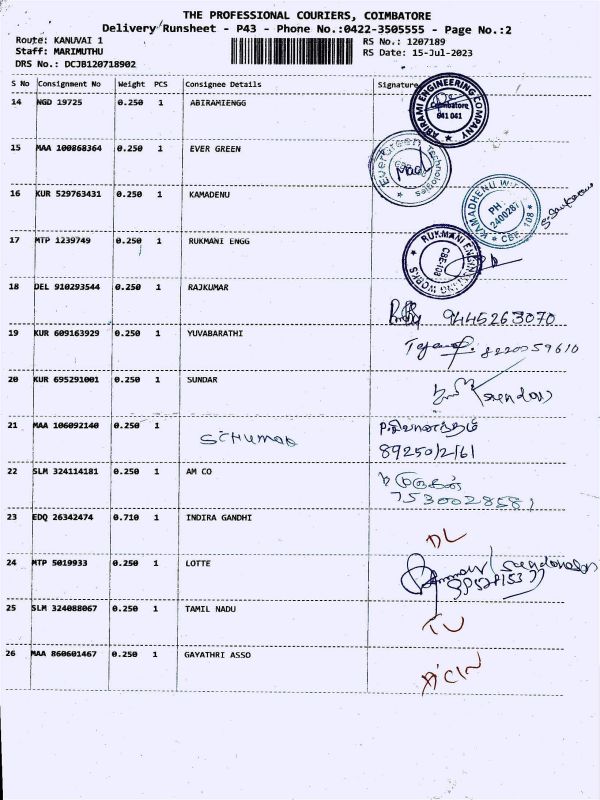 THE PROFESSIONAL COURIERS, COIMBATORE
Delivery Runsheet - P43 - Phone No.:0422-3505555 - Page No.:2
Route: KANUVAI 1
RS No.: 1207189
Staff: MARIMUTHU
RS Date: 15-Jul-2023
DRS No.: DCJB120718902
S No Consignment No Weight PCS Consignee Details Signature
14 NGD 19725 0.250 1 ABIRAMIENGG
ABIRAMI ENGINEERING COMPANY
Coimbatore
641 041
15 MAA 100868364 0.250 1 EVER GREEN
EverGreen Technologies
16 KUR 529763431 0.250 1 KAMADENU
KAMADHENU
PH
CBE 108
17 MTP 1239749 0.250 1 RUKMANI ENGG
RUKMANI ENGINEERING WORKS
CBE-108
18 DEL 910293544 0.250 1 RAJKUMAR
9445263070
19 KUR 609163929 0.250 1 YUVABARATHI
8220059610
20 KUR 695291001 0.250 1 SUNDAR
21 MAA 106092140 0.250 1
89250/2/61
22 SLM 324114181 0.250 1 AM CO
முருகன்
7530028581
23 EDQ 26342474 0.710 1 INDIRA GANDHI
DL
24 MTP 5019933 0.250 1 LOTTE
25 SLM 324088067 0.250 1 TAMIL NADU
TU
26 MAA 860601467 0.250 1 GAYATHRI ASSO